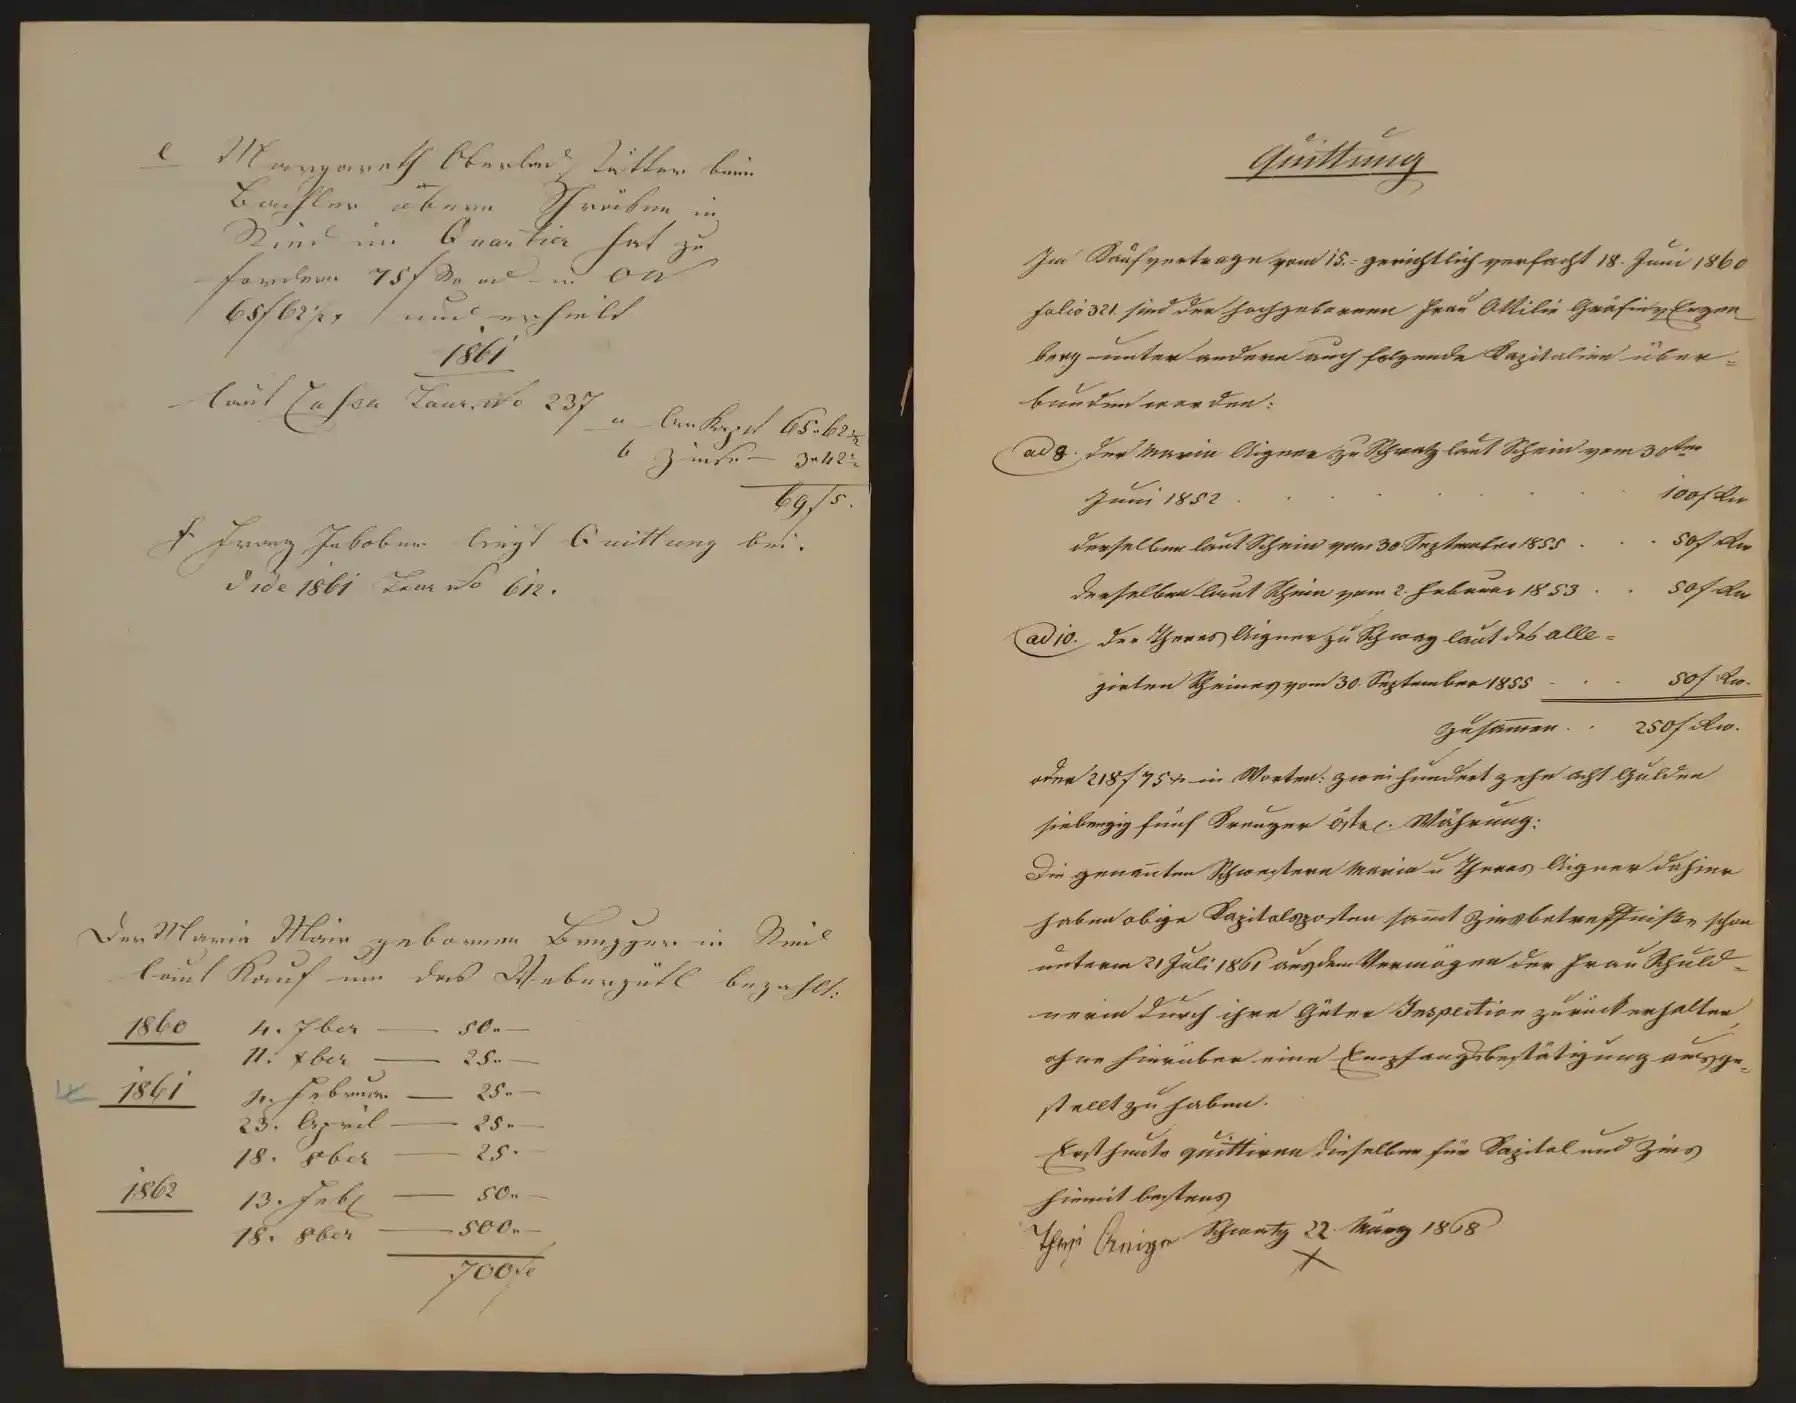 e Margareth Oberlad beim
Bachler obern Schroiben in
Ried im Quartier hat zu
fordern 75 f Rw od in OW
65 f 62½ x und erhielt
1861
laut Cassa Jour. No 237
a An Kapit 65 " 62½
b Zinse — 3 " 42½
69 f 5.
f Franz liegt Quittung bei.
Vide 1861 Jour No 612.
Der Maria Mair gebornen Brugger in Ried
laut Kauf um das bezahlt:
1860 4. 7ber — 50 " —
11. xber — 25 " —
1861 4. Februar — 25 " —
23. April — 25 " —
18. 8ber — 25 " —
1862 13. Feb — 50 " —
18. 8ber — 500 " —
700 f
Quittung
Im Kaufvertrage vom 15. = gerichtlich verfacht 18. Juni 1860
folio 321. sind der hochgebornen Frau Ottilie Gräfin v. Enzen
berg unter andern auch folgende Kapitalien über =
bunden worden:
ad 8. der Maria Aigner zu Schwatz laut Schein vom 30ten
Juni 1852 . . . . . . . . 100 f Rw
derselben laut Schein vom 30. September 1855 . . . 50 f Rw
derselben laut Schein vom 2. Februar 1853 . . 50 f Rw
ad 10. der Theres Aigner zu Schwaz laut des alle =
girten Scheines vom 30. September 1855 . . . 50 f Rw.
zusammen . . 250 f Rw.
oder 218 f 75 x in Worten: zweihundert zehn acht Gulden
siebenzig fünf Kreuzer östr. Währung:
Die genannten Schwestern Maria u Theres Aigner dahier
haben obige Kapitalsposten sammt Zinsbetreffnisse schon
unterm 21 Juli 1861 aus dem Vermögen der Frau Schuld =
nerin durch ihre Güter Inspection zurück erhalten,
ohne hierüber eine Empfangsbestätigung ausge =
stellt zu haben.
Erst heute quittiren dieselben für Kapital und Zins
hiemit bestens
Schwatz 22. März 1868